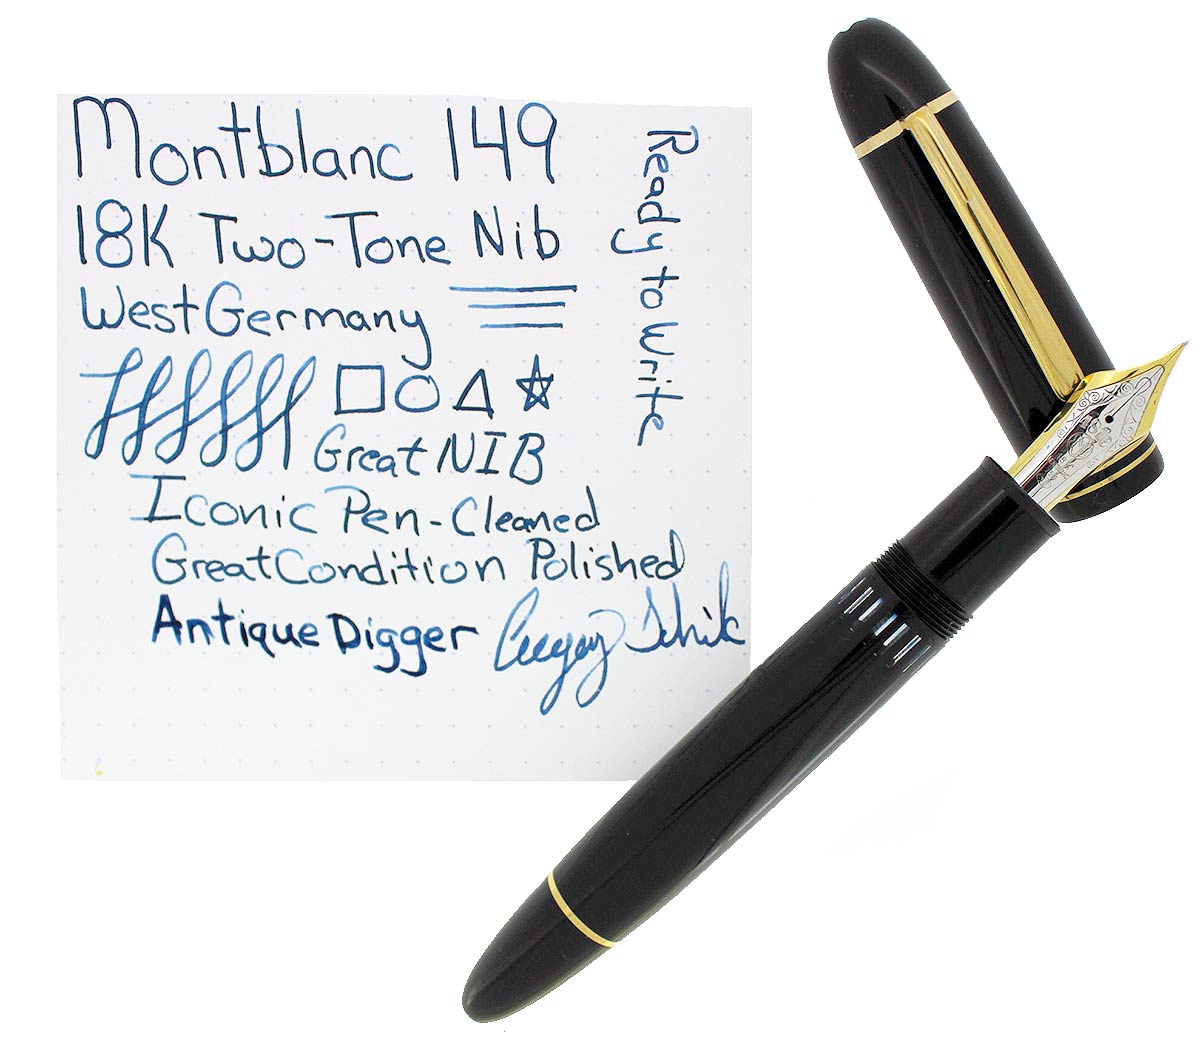 Montblanc 149
18K Two-Tone Nib
West Germany
Great NIB
Iconic Pen-Cleaned
Great Condition Polished
Antique Digger
Ready to Write